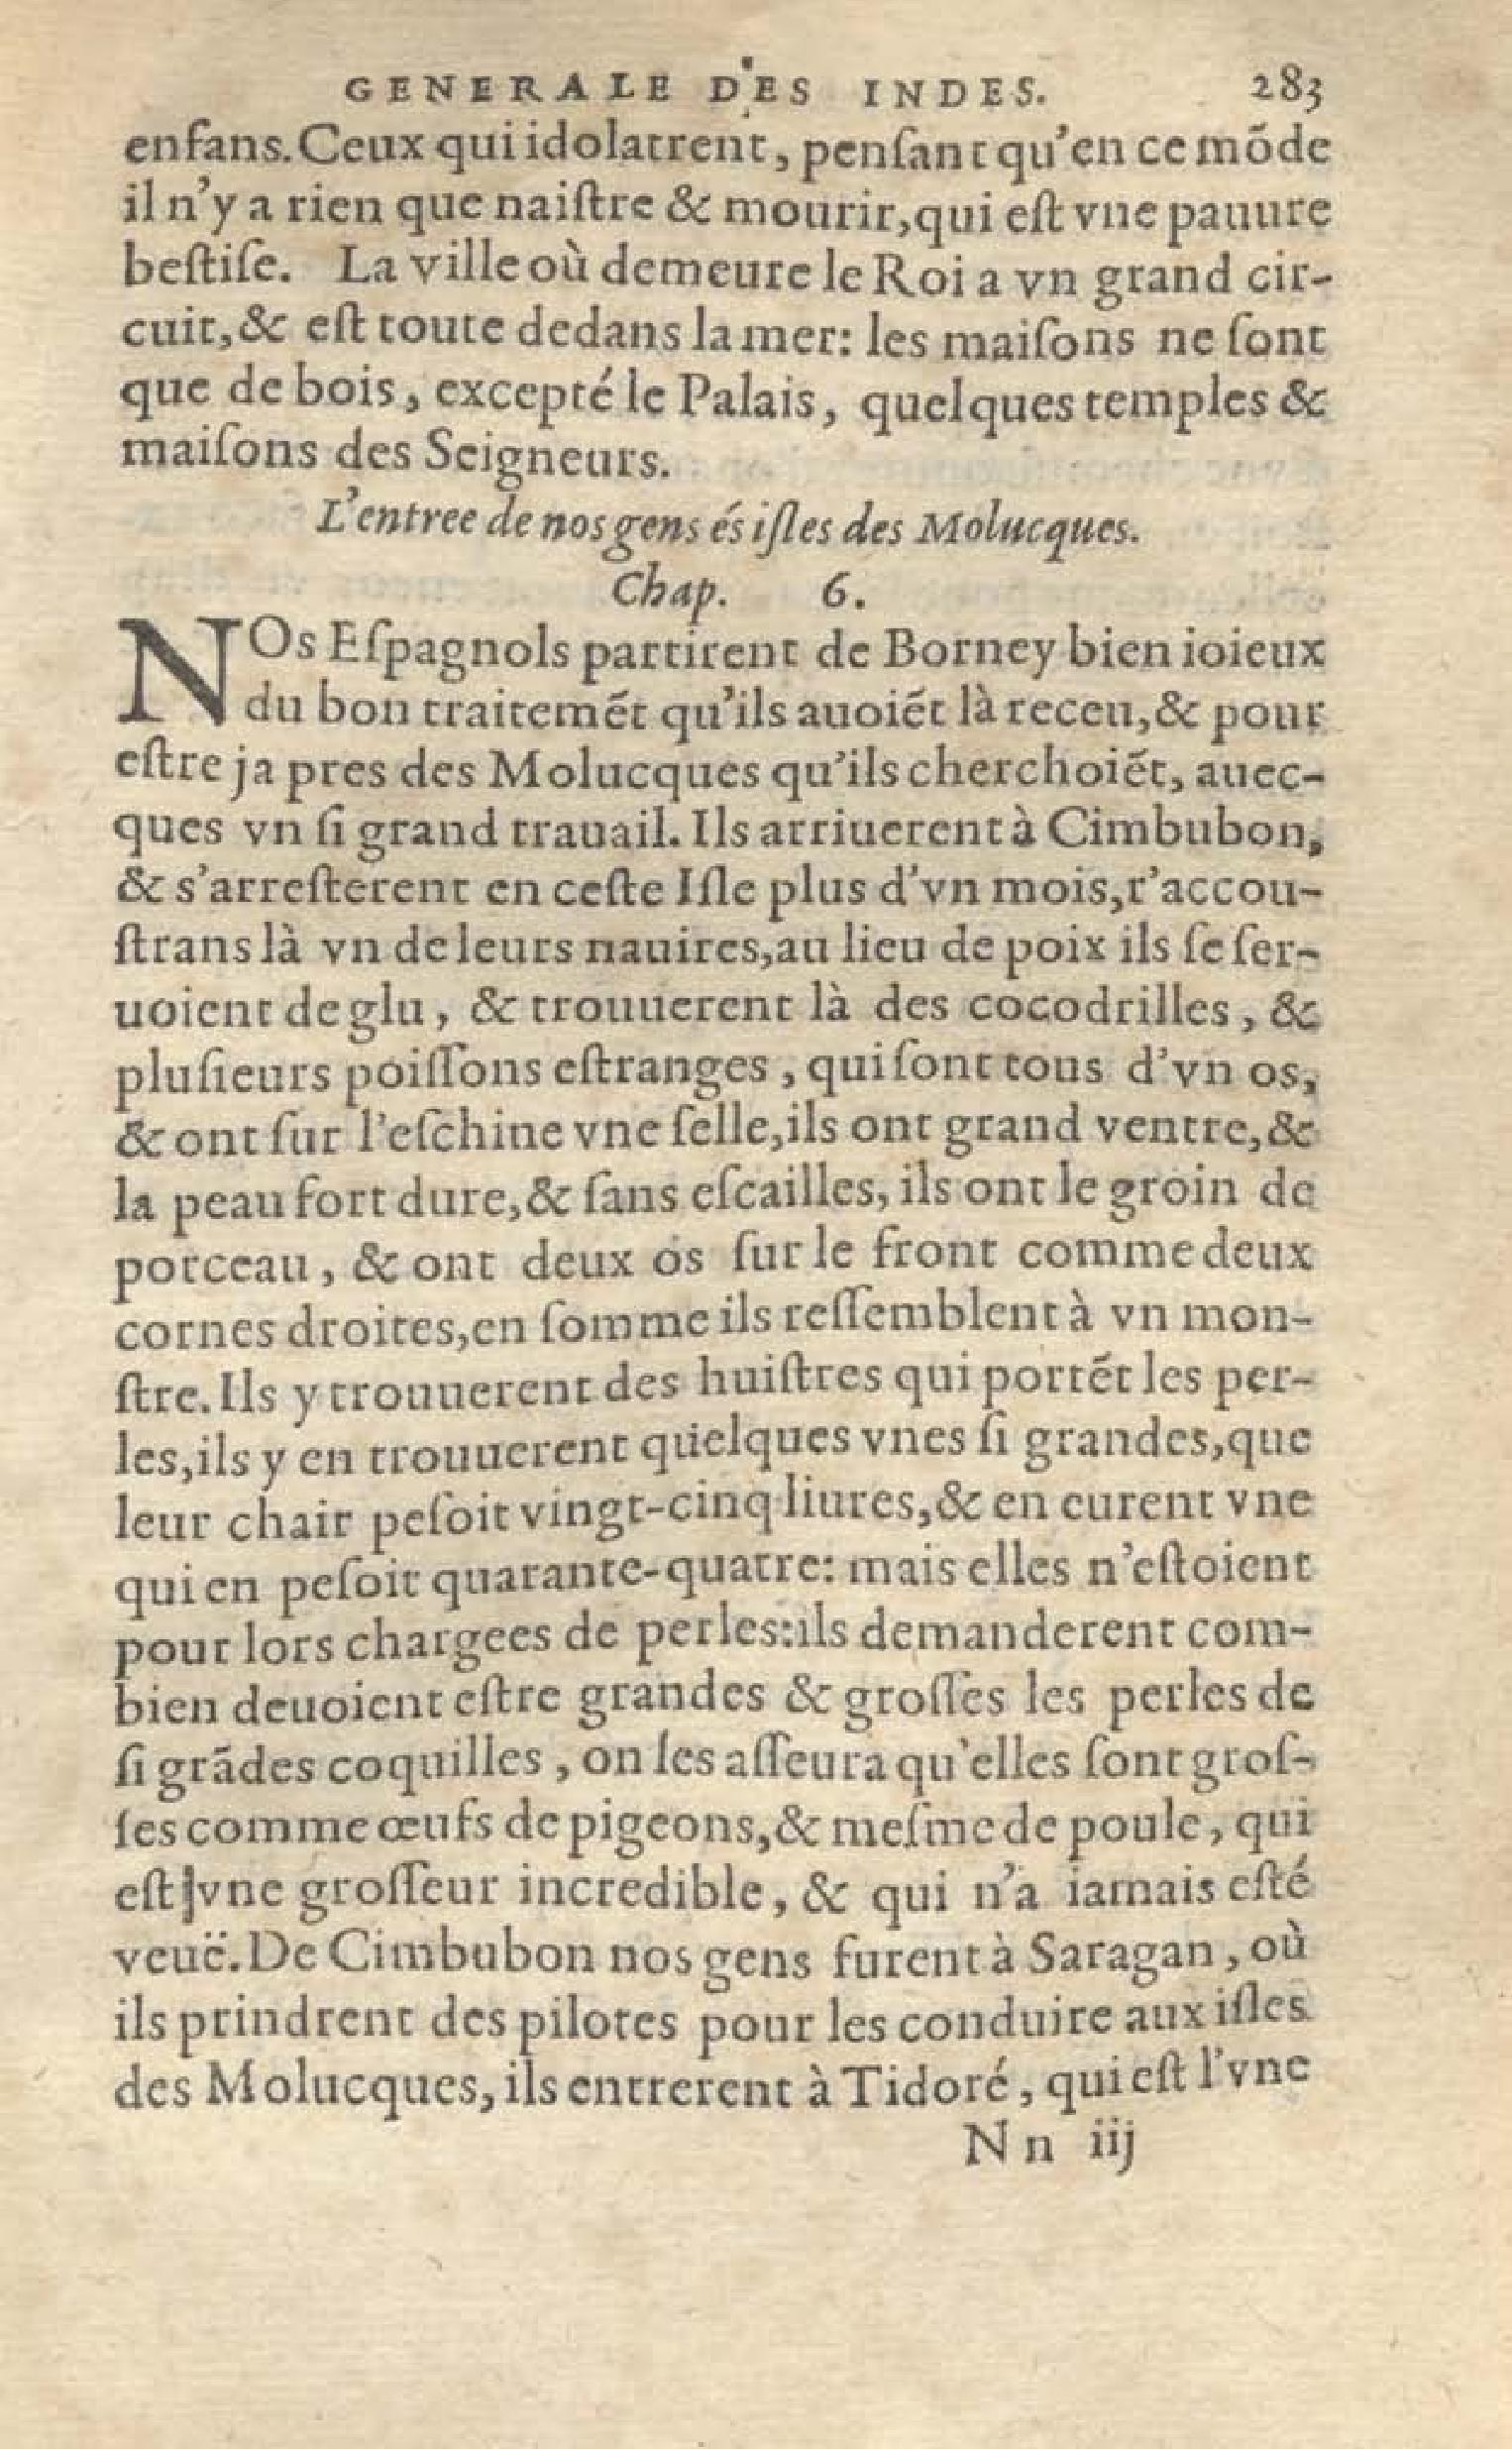 GENERALE DES INDES. 283
enfans. Ceux qui idolatrent, penſant qu'en ce mõde
il n'y a rien que naiſtre & mourir, qui eſt vne pauure
beſtiſe. La ville où demeure le Roi a vn grand cir-
cuit, & eſt toute dedans la mer: les maiſons ne ſont
que de bois, excepté le Palais, quelques temples &
maiſons des Seigneurs.
L'entree de nos gens és iſles des Molucques.
Chap. 6.
NOs Eſpagnols partirent de Borney bien ioieux
du bon traitemẽt qu'ils auoiẽt là receu, & pour
eſtre ja pres des Molucques qu'ils cherchoiẽt, auec-
ques vn ſi grand trauail. Ils arriuerent à Cimbubon,
& s'arreſterent en ceſte Iſle plus d'vn mois, r'accou-
ſtrans là vn de leurs nauires, au lieu de poix ils ſe ſer-
uoient de glu, & trouuerent là des cocodrilles, &
pluſieurs poiſſons eſtranges, qui ſont tous d'vn os,
& ont ſur l'eſchine vne ſelle, ils ont grand ventre, &
la peau fort dure, & ſans eſcailles, ils ont le groin de
porceau, & ont deux os ſur le front comme deux
cornes droites, en ſomme ils reſſemblent à vn mon-
ſtre. Ils y trouuerent des huiſtres qui portẽt les per-
les, ils y en trouuerent quelques vnes ſi grandes, que
leur chair peſoit vingt-cinq liures, & en eurent vne
qui en peſoit quarante-quatre: mais elles n'eſtoient
pour lors chargees de perles: ils demanderent com-
bien deuoient eſtre grandes & groſſes les perles de
ſi grãdes coquilles, on les aſſeura qu'elles ſont groſ-
ſes comme œufs de pigeons, & meſme de poule, qui
eſt vne groſſeur incredible, & qui n'a iamais eſté
veuë. De Cimbubon nos gens furent à Saragan, où
ils prindrent des pilotes pour les conduire aux iſles
des Molucques, ils entrerent à Tidoré, qui eſt l'vne
Nn iij